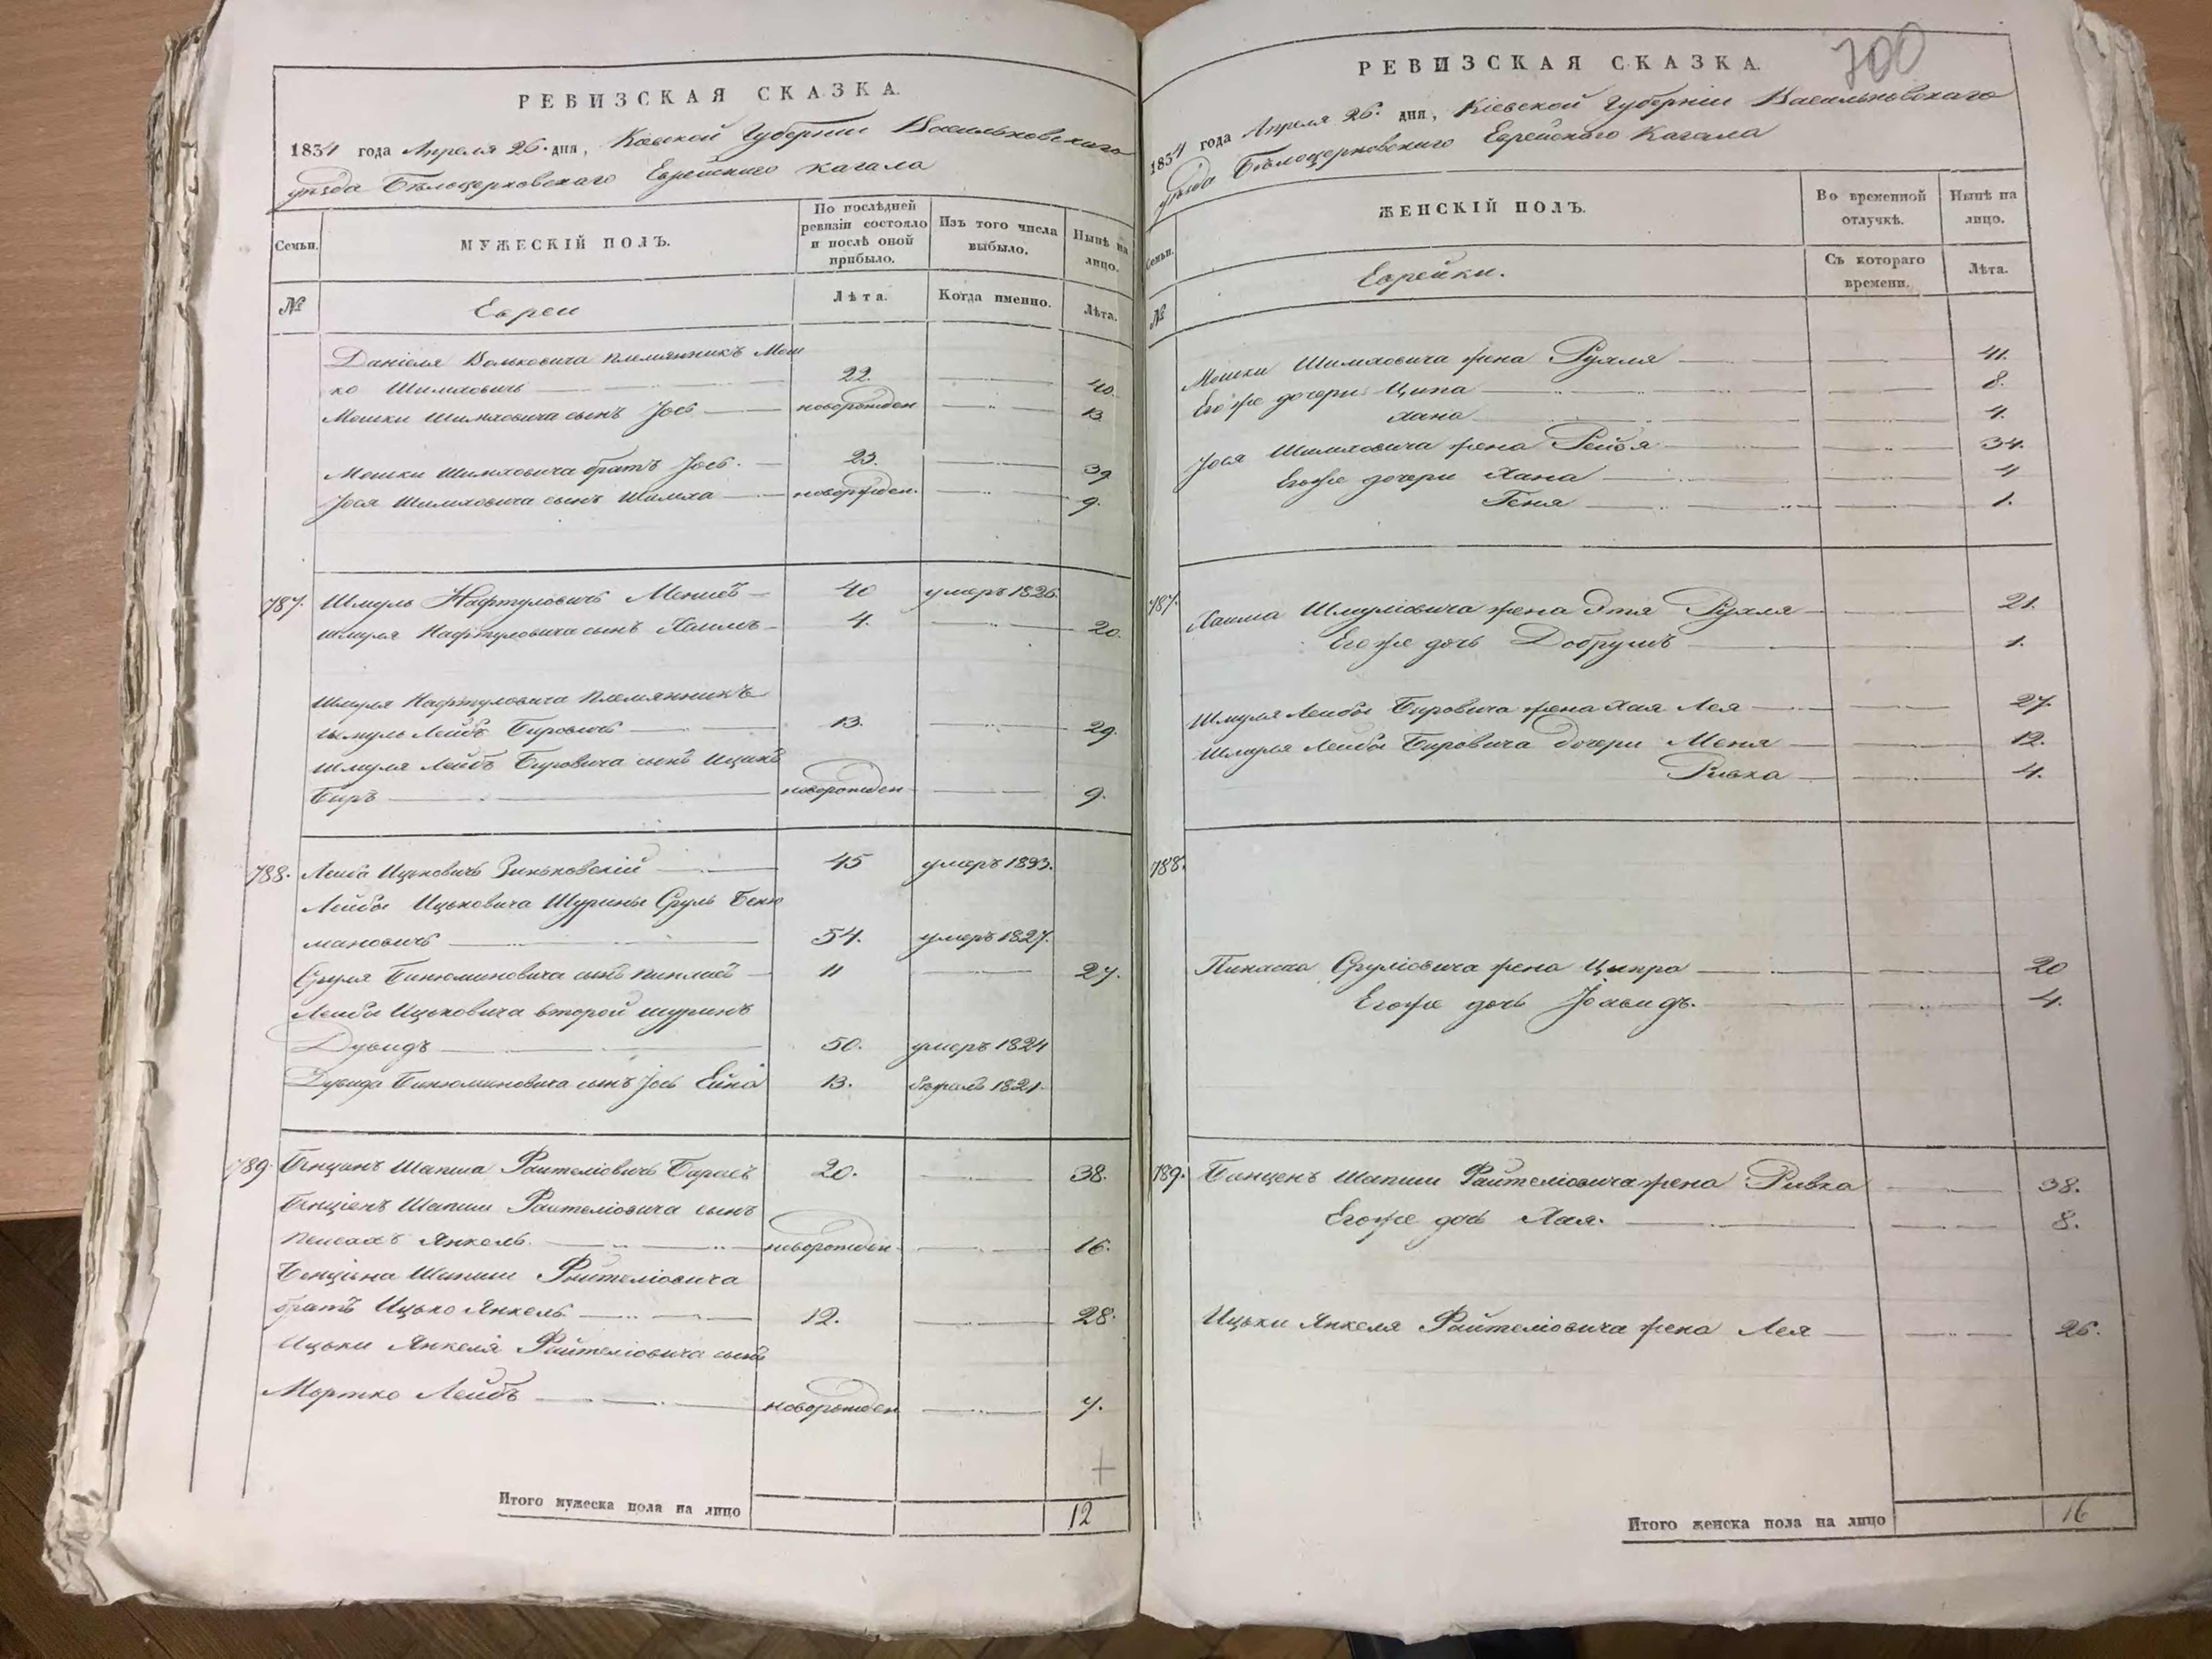 РЕВИЗСКАЯ СКАЗКА.
1834 года Апреля 26. дня, Кіевской Губерніи Васильковскаго
уѣзда Бѣлоцерковскаго Еврейскаго Кагала
Семьи.
МУЖЕСКІЙ ПОЛЪ.
По послѣдней ревизіи состояло и послѣ оной прибыло.
Изъ того числа выбыло.
Нынѣ на лицо.
№
Евреи
Лѣта.
Когда именно.
Лѣта.
Даніеля Волковича племянникъ Мош
ко Шимховичъ 22. 40.
Мошки Шимховича сынъ Іось новорожден 13
Мошки Шимховича братъ Іось. 23. 39
Іося Шимховича сынъ Шимха новорожден. 9.
787. Шмуль Нафтуловичъ 40 умеръ 1826.
Шмуля Нафтуловича сынъ Хаимъ 4. 20.
Шмуля Нафтуловича племянникъ
Шмуль Лейбъ Бировичъ 13. 29.
Шмуля Лейбъ Бировича сынъ Ицикъ
Биръ новорожден 9.
788. Лейба Ицковичъ Зиньковскій 45 умеръ
Лейбы Ицковича Шуринъ Сруль Беню
миновичъ 54. умеръ 1827.
Сруля Бинюминовича сынъ 11 27.
Лейбы Ицковича второй шуринъ
Дувидъ 50. умеръ 1824
Дувида Бинюминовича сынъ Іось 13. 1821.
789. Бенціонъ Шапса 20. 38.
Бенціонъ Шапши Райтеліовича сынъ
Пейсахъ Янкель новорожден 16.
Бенціона Шапши Райтеліовича
братъ Ицько Янкель 12. 28.
Ицьки Янкеля Райтеліовича сынъ
Мортко Лейбъ новорожден 7.
Итого мужеска пола на лицо 12
700
РЕВИЗСКАЯ СКАЗКА.
1834 года Апреля 26. дня, Кіевской Губерніи Васильковскаго
уѣзда Бѣлоцерковскаго Еврейскаго Кагала
Семьи.
ЖЕНСКІЙ ПОЛЪ.
Во временной отлучкѣ.
Нынѣ на лицо.
№
Еврейки.
Съ котораго времени.
Лѣта.
Мошки Шимховича жена Рухля 41.
Его же дочери Ципа 8.
Хана 4.
Іося Шимховича жена Рейзя 34.
Его же дочери Хана 4
Геня 1.
787. Хаима Шмуліовича жена Рухля 21.
Его же дочь Добрушъ 1.
Шмуля Лейбы Бировича жена Хая Лея 27.
Шмуля Лейбы Бировича дочери Меня 12.
Ривка 4.
788.
Пинкаса Сруліовича жена Ципра 20
Его же дочь 4.
789. Банценъ Шапши Райтеліовича жена Ривка 38.
Его же дочь Хая. 8.
Ицьки Янкеля Райтеліовича жена Лея 26.
Итого женска пола на лицо 16